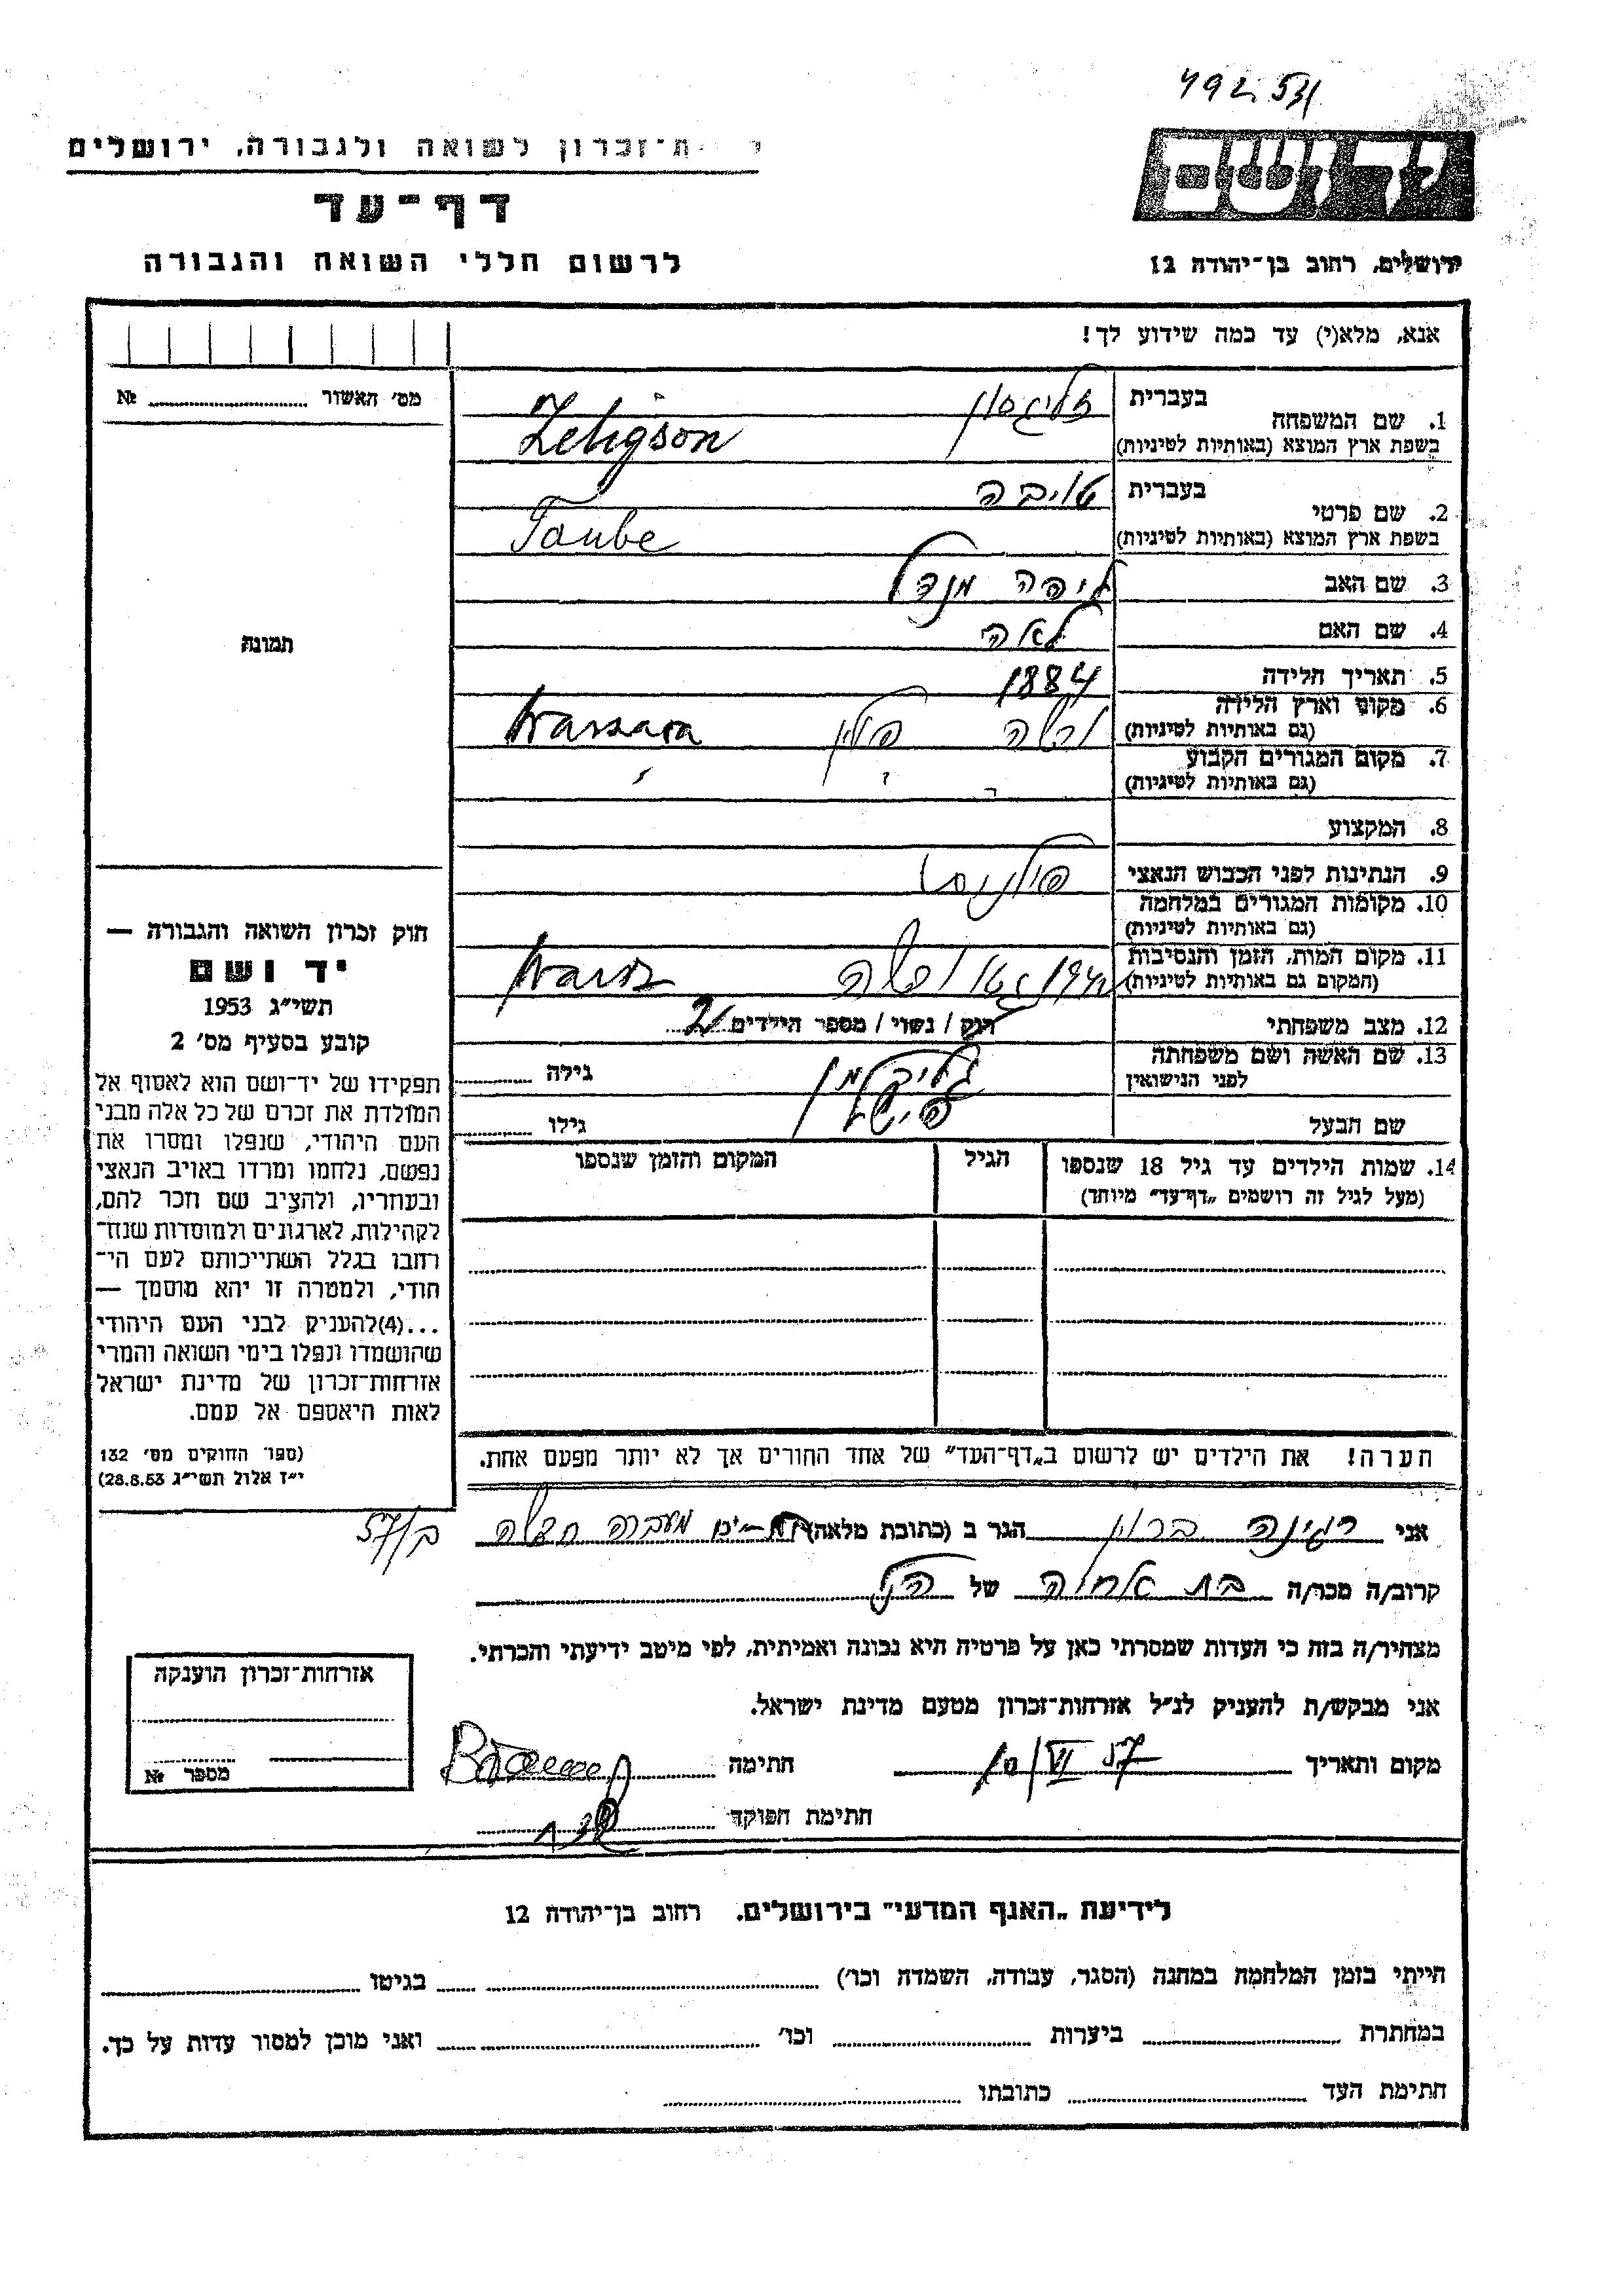 492 531
ת־זכרון לשואה ולגבורה, ירושלים
דף־עד
לרשום חללי השואה והגבורה
ירושלים, רחוב בן־יהודה 12
אנא, מלא(י) עד כמה שידוע לך!
מס׳ האשור № 
בעברית זליגסון
1. שם המשפחה
בשפת ארץ המוצא (באותיות לטיניות) Zeligson
בעברית טויבה
2. שם פרטי
בשפת ארץ המוצא (באותיות לטיניות) Taube
3. שם האב ליפה מנדל
4. שם האם לאה
5. תאריך הלידה 1884
6. מקום וארץ הלידה
(גם באותיות לטיניות) ורשה פולין Warszawa
7. מקום המגורים הקבוע
(גם באותיות לטיניות)
8. המקצוע
9. הנתינות לפני הכבוש הנאצי
10. מקומות המגורים במלחמה
(גם באותיות לטיניות)
11. מקום המות, הזמן והנסיבות
(המקום גם באותיות לטיניות) גטו ורשה
12. מצב משפחתי רוק / נשוי / מספר הילדים 2
13. שם האשה ושם משפחתה
לפני הנישואין גילה
שם הבעל פישל גילו
14. שמות הילדים עד גיל 18 שנספו
(מעל לגיל זה רושמים „דף־עד״ מיוחד)
הגיל
המקום והזמן שנספו
תמונה
חוק זכרון השואה והגבורה —
יד ושם
תשי״ג 1953
קובע בסעיף מס׳ 2
תפקידו של יד־ושם הוא לאסוף אל
המולדת את זכרם של כל אלה מבני
העם היהודי, שנפלו ומסרו את
נפשם, נלחמו ומרדו באויב הנאצי
ובעוזריו, ולהציב שם וזכר להם,
לקהילות, לארגונים ולמוסדות שנח־
רבו בגלל השתייכותם לעם הי־
הודי, ולמטרה זו יהא מוסמך —
...(4)להעניק לבני העם היהודי
שהושמדו ונפלו בימי השואה והמרי
אזרחות־זכרון של מדינת ישראל
לאות היאספם אל עמם.
(ספר החוקים מס׳ 132
י״ז אלול תשי״ג 28.8.53)
הערה! את הילדים יש לרשום ב„דף־העד״ של אחד ההורים אך לא יותר מפעם אחת.
אני רגינה ברון הגר ב (כתובת מלאה) מעברה חדשה ב/57
קרוב/ה מכר/ה בת אחיה של הנ״ל
מצהיר/ה בזה כי העדות שמסרתי כאן על פרטיה היא נכונה ואמיתית, לפי מיטב ידיעתי והכרתי.
אני מבקש/ת להעניק לנ״ל אזרחות־זכרון מטעם מדינת ישראל.
מקום ותאריך 10/VI 57 חתימה
חתימת הפוקד
אזרחות־זכרון הוענקה
מספר №
לידיעת „האגף המדעי״ בירושלים. רחוב בן־יהודה 12
הייתי בזמן המלחמה במחנה (הסגר, עבודה, השמדה וכו׳) בגיטו
במחתרת ביערות וכו׳ ואני מוכן למסור עדות על כך.
חתימת העד כתובתו